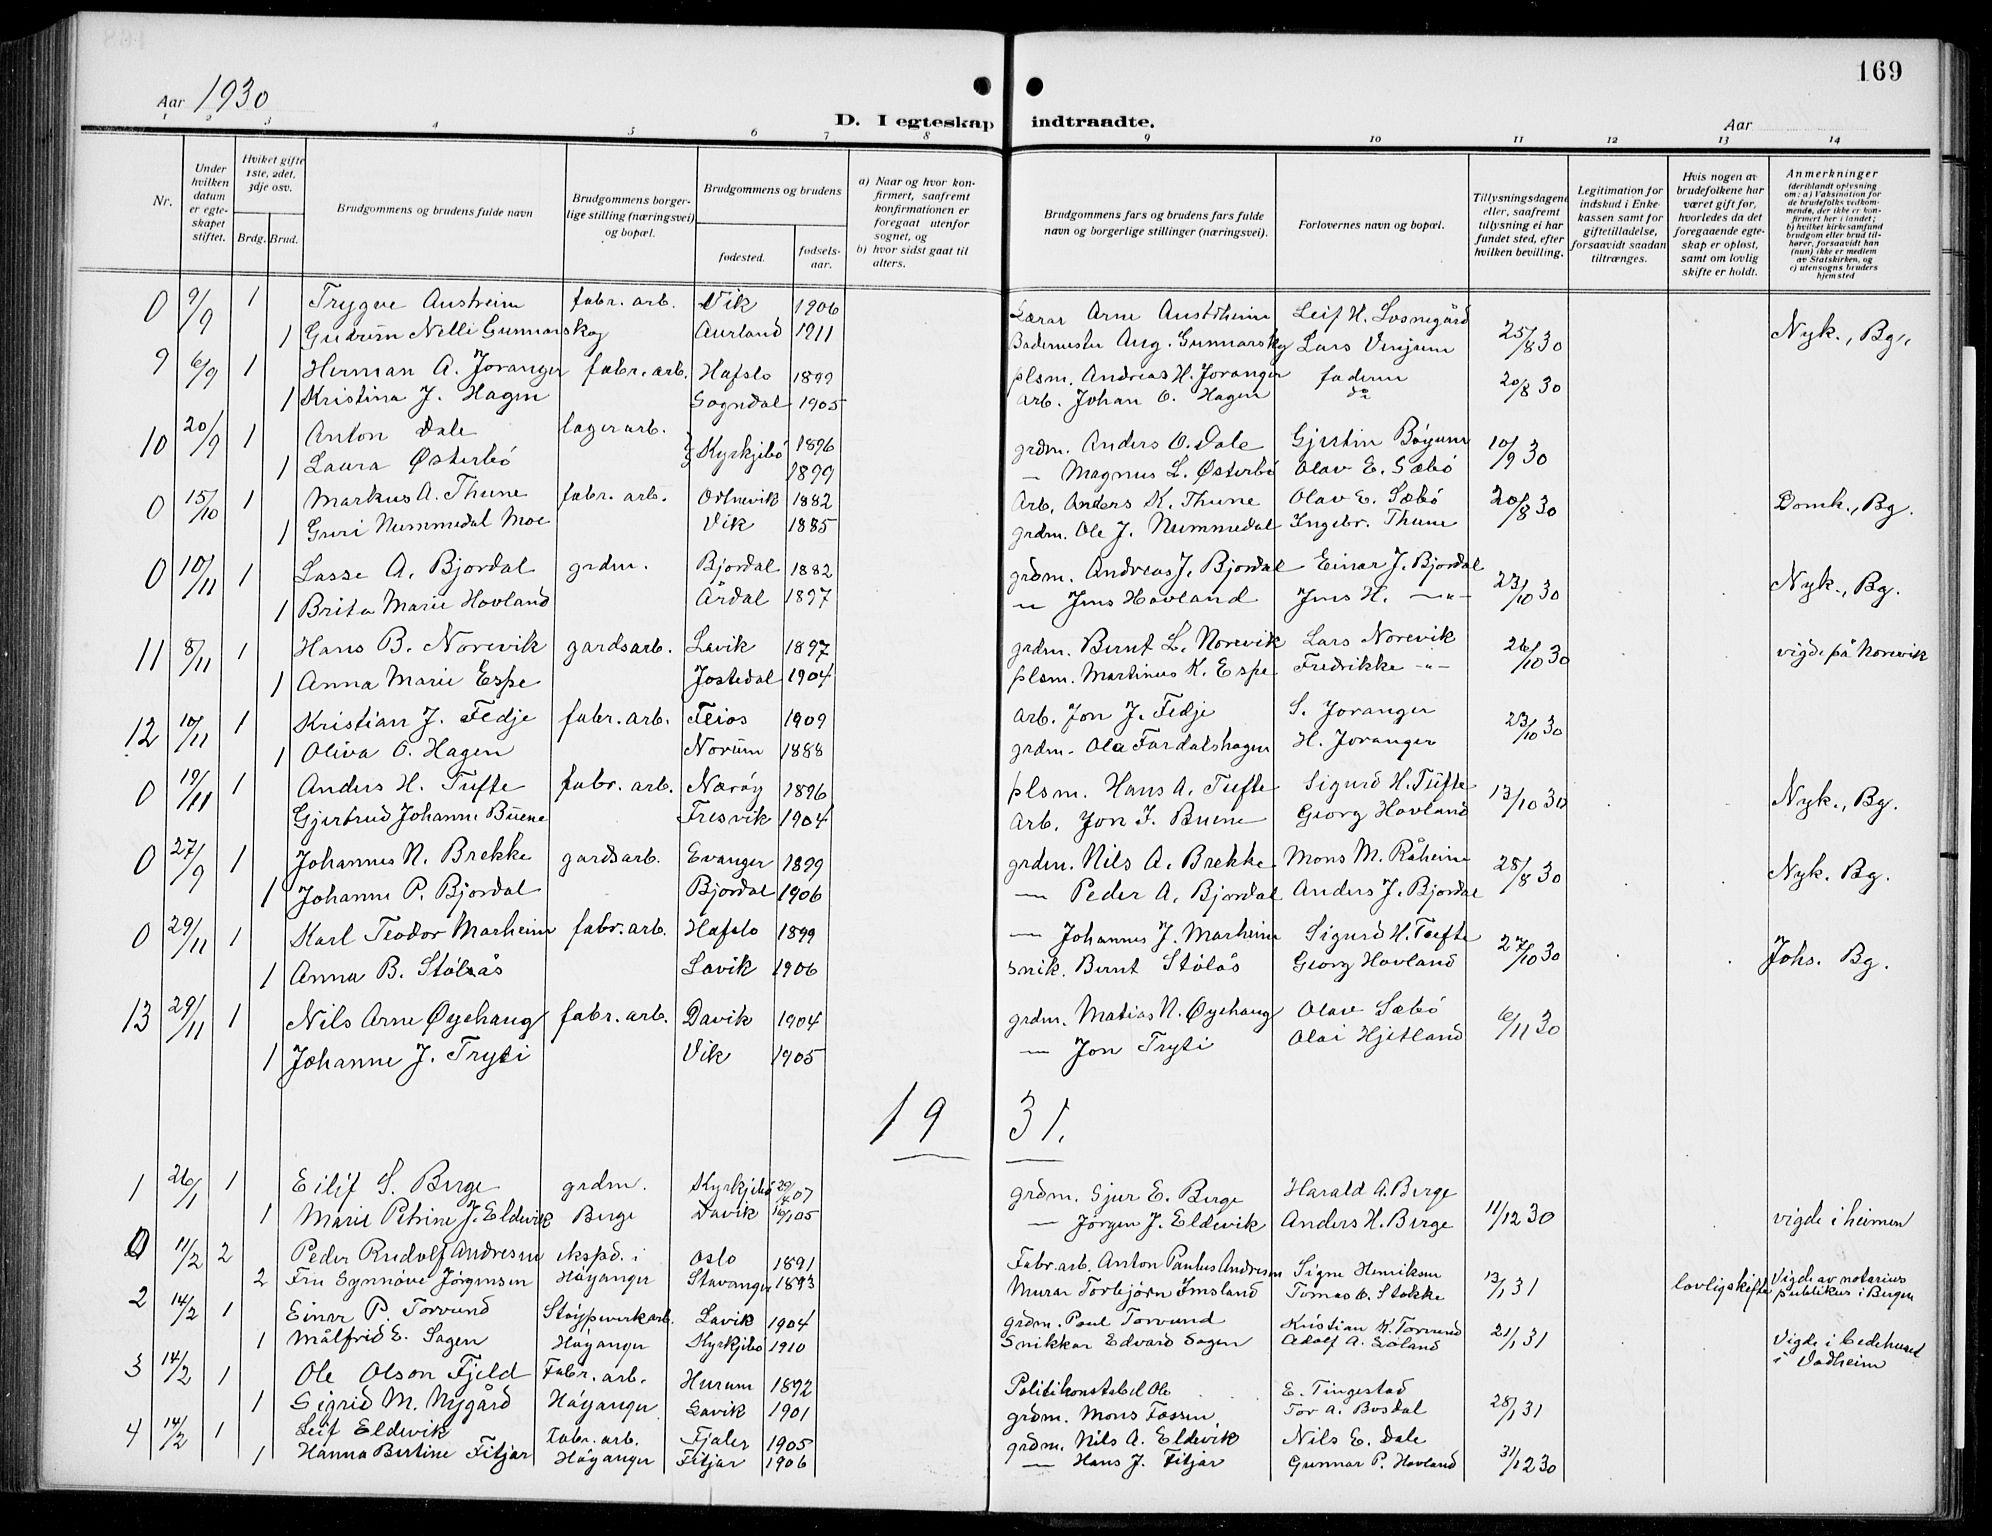 169
Aar 1930
Aar
D. I egteskap indtraadte.
1 2 3 4 5 6 7 8 9 10 11 12 13 14
Nr.
Under hvilken datum er egteskapet stiftet.
Hviket gifte 1ste, 2det, 3dje osv.
Brdg. Brud.
Brudgommens og brudens fulde navn
Brudgommens borgerlige stilling (næringsvei) og bopæl.
Brudgommens og brudens
fødested.
fødselsaar.
a) Naar og hvor konfirmert, saafremt konfirmationen er foregaat utenfor sognet, og
b) hvor sidst gaat til alters.
Brudgommens fars og brudens fars fulde navn og borgerlige stillinger (næringsvei).
Forlovernes navn og bopæl.
Tillysningsdagene eller, saafremt tillysning ei har fundet sted, efter hvilken bevilling.
Legitimation for indskud i Enkekassen samt for giftetilladelse, forsaavidt saadan tiltrænges.
Hvis nogen av brudefolkene har været gift før, hvorledes da det foregaaende egteskap er opløst, samt om lovlig skifte er holdt.
Anmerkninger (deriblandt oplysning om: a) Vaksination for de brudefolks vedkommende, der ikke er konfirmert her i landet; b) hvilket kirkesamfund brudgom eller brud tilhører, forsaavidt han (hun) ikke er medlem av Statskirken, og c) utensogns bruders hjemsted
0 9/9 1 Trygve Austreim fabr. arb. Vik 1906 Lærar Arne Austrheim Leif H. Losnegård 25/8 30 Nyk., Bg.
1 Gudrun Nelli Gunnarskog Aurland 1911 Bademester Aug. Gunnarskog Lars Vinjum
9 6/9 1 Herman A. Joranger fabr. arb. Hafslo 1899 plsm. Andreas H. Joranger faderen 20/8 30
1 Kristina J. Hagen Sogndal 1905 arb. Johan O. Hagen do
10 20/9 1 Anton Dale lagerarb. Kyrkjebø 1896 grdm. Anders O. Dale Gjertin Bøyum 10/9 30
1 Laura Østerbö 1899 — Magnus L. Østerbö Olav E. Sæbö
0 15/10 1 Markus A. Thune fabr. arb. Ortnevik 1882 Arb. Anders K. Thune Olav E. Sæbö 20/8 30 Domk., Bg.
1 Guri Nummedal Moe Vik 1885 grdm. Ole J. Nummedal Ingebr. Thune
0 10/11 1 Lasse A. Bjordal grdm. Bjordal 1882 grdm. Andreas J. Bjordal Einar J. Bjordal 23/10 30 Nyk., Bg.
1 Brita Marie Hovland Årdal 1897 —"— Jens Hovland Jens H. —"—
11 8/11 1 Hans B. Norevik gardsarb. Lavik 1897 grdm. Bernt L. Norevik Lars Norevik 26/10 30 vigde på Norevik
1 Anna Marie Espe Jostedal 1904 plsm. Martinus K. Espe Fredrikke —"—
12 10/11 1 Kristian J. Fedje fabr. arb. Feios 1909 arb. Jon J. Fedje S. Joranger 23/10 30
1 Oliva O. Hagen Norum 1888 grdm. Ola Fardalshagen H. Joranger
0 19/11 1 Anders H. Tufte fabr. arb. Nærøy 1896 plsm. Hans A. Tufte Sigurd H. Tufte 13/10 30 Nyk., Bg.
Gjertrud Johanne Buene Fresvik 1904 arb. Jon J. Buene Georg Hovland
0 27/9 1 Johannes N. Brekke gardsarb. Evanger 1899 grdm. Nils A. Brekke Mons M. Råheim 28/8 30 Nyk. Bg.
1 Johanne P. Bjordal Bjordal 1906 — Peder A. Bjordal Anders J. Bjordal
0 29/11 1 Karl Teodor Marheim fabr. arb. Hafslo 1899 — Johannes J. Marheim Sigurd H. Tufte 27/10 30 Johs. Bg.
1 Anna B. Stölsås Lavik 1906 snik. Bernt Stölås Georg Hovland
13 29/11 1 Nils Arne Øyehaug fabr. arb. Davik 1904 grdm. Matias N. Øyehaug Olav Sæbö 6/11 30
1 Johanne J. Tryti Vik 1905 — Jon Tryti Olai Hjetland
1931.
1 26/1 1 Eilif S. Berge grdm. Kyrkjebö 07 grdm. Sjur E. Berge Harald A. Berge 11/12 30 vigde i heimen
1 Marie Petrine J. Eldevik Berge Davik 05 — Jörgen J. Eldevik Anders H. Berge
0 11/2 2 Peder Rudolf Andresen ekspd. i Oslo 1891 Fabr. arb. Anton Paulus Andresen Signe Henriksen 13/1 31 lovlig skifte Vigde av notarius publikus i Bergen
2 Fru Synnöve Jörgensen Höyanger Stavanger 1893 Murar Torbjörn Imsland Tomas O. Stokke
2 14/2 1 Einar P. Torvund Stöypverkarb. Lavik 1904 grdm. Paul Torvund Kristian K. Torvund 21/1 31 Vigde i bedehuset i Vadheim
1 Målfrid E. Sagen Höyanger Kyrkjebö 1910 Snikkar Edvard Sagen Adolf A. Söland
3 14/2 1 Ole Olson Fjeld Fabr. arb. Hurum 1892 Politikonstabel Ole E. Tingestad 28/1 31
1 Sigrid M. Nygård Höyanger Lavik 1901 grdm. Mons Fossen Tor A. Bosdal
4 14/2 1 Leif Eldevik Fabr. arb. Fjaler 1905 grdm. Nils A. Eldevik Nils E. Dale 31/12 30
1 Hanna Bertine Fitjar Höyanger Fitjar 1906 — Hans J. Fitjar Gunnar P. Hovland